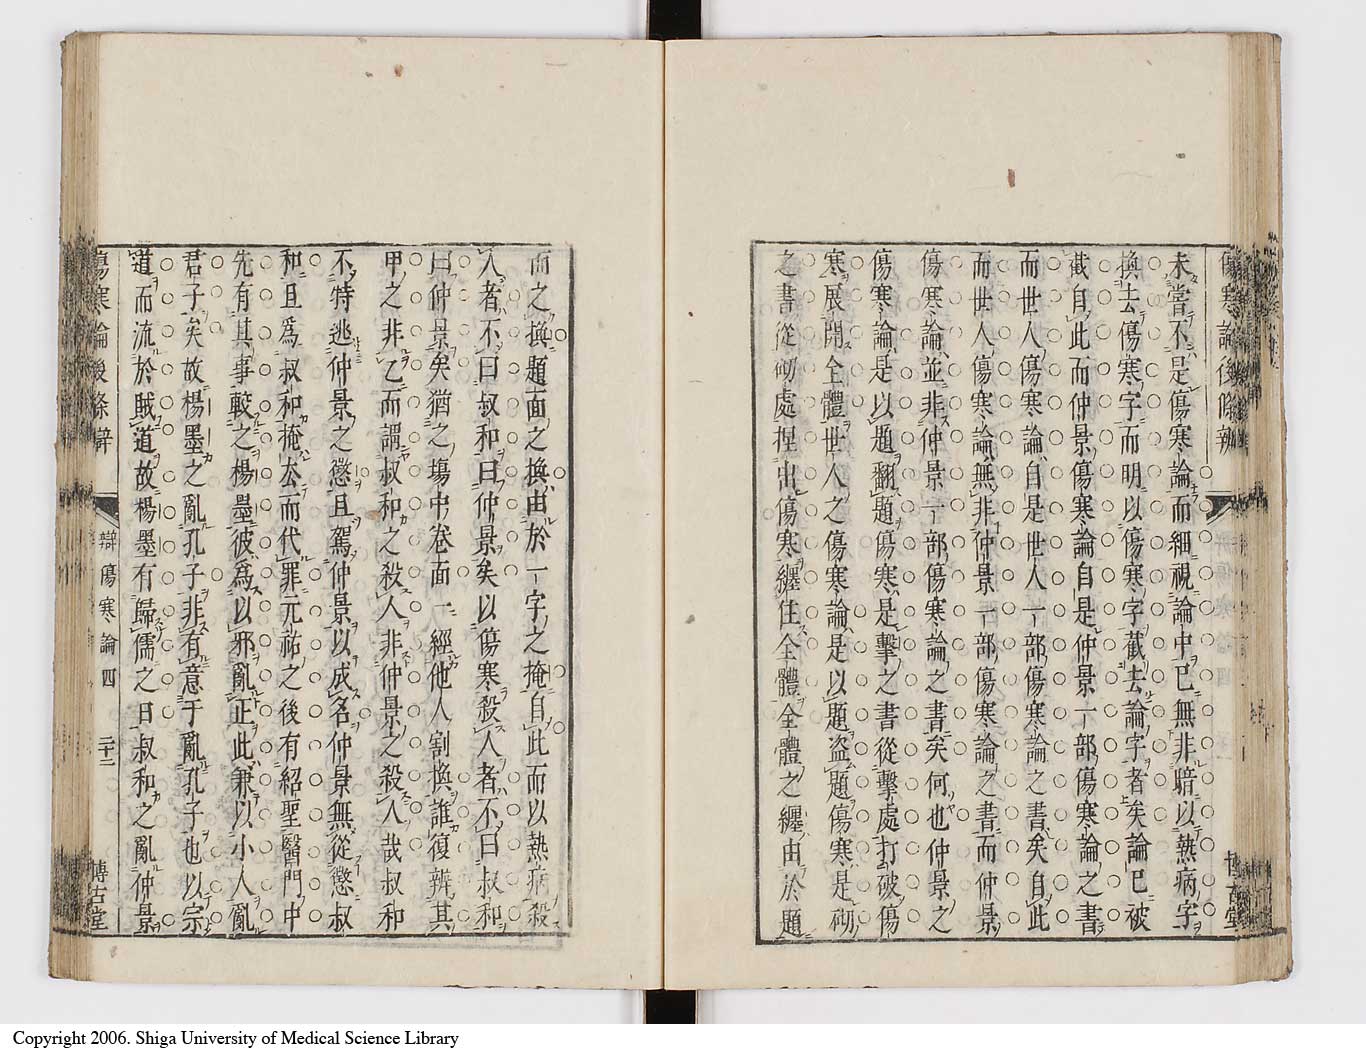 未嘗不是傷寒論而細視論中已無非暗以熱病字
換去傷寒字而明以傷寒字截去論字者矣論已被
截自此而仲景傷寒論自是仲景一部傷寒論之書
而世人傷寒論自是世人一部傷寒論之書矣自此
而世人傷寒論無非仲景一部傷寒論之書而仲景
傷寒論並非仲景一部傷寒論之書矣何也仲景之
傷寒論是以題翻題傷寒是擊之書從擊處打破傷
寒展開全體世人之傷寒論是以題盗題傷寒是砌
之書從砌處捏出傷寒纏住全體全體之纏由於題
傷寒論後條辨
博古堂
而之換題面之換由於一字之掩自此而以熱病殺
人者不曰叔和曰仲景矣以傷寒殺人者不曰叔和
曰仲景矣猶之塲中卷面一經他人割換誰復辨其
甲之非乙而謂叔和之殺人非仲景之殺人哉叔和
不特逃仲景之懲且駕仲景以成名仲景無從懲叔
和且爲叔和掩厺而代罪元祐之後有紹聖醫門中
先有其事較之楊墨彼爲以邪亂正此兼以小人亂
君子矣故楊墨之亂孔子非有意于亂孔子也以宗
道而流於賊道故楊墨有歸儒之日叔和之亂仲景
傷寒論後條辨
辯傷寒論四
二十二
博古堂
Copyright 2006. Shiga University of Medical Science Library